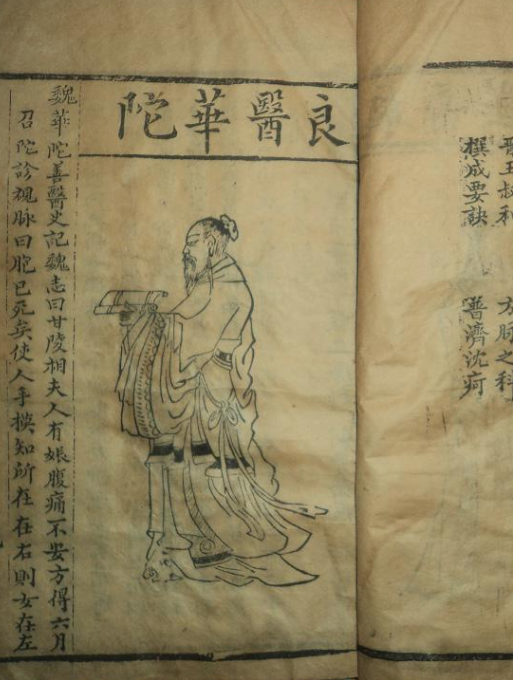 晉王叔和 方脉之科
撰成要訣 普濟沈疴
良醫華陀
魏華陀善醫史記魏志曰甘陵相夫人有娠腹痛不安方得六月
召陀診視脉曰胞已死矣使人手摸知所在在右則女在左